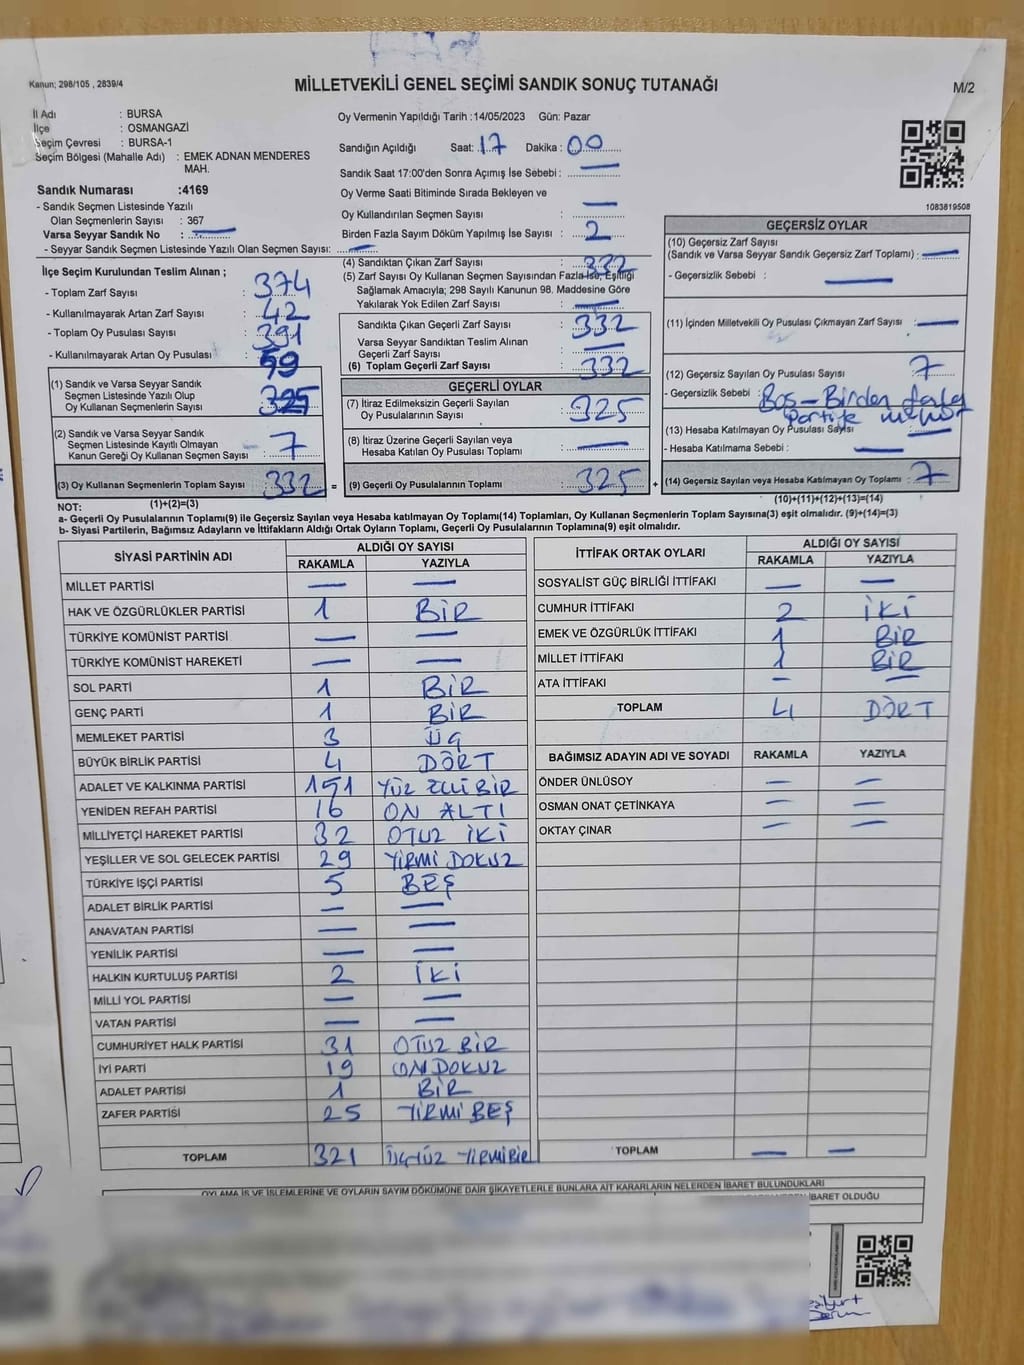 Kanun; 298/105 , 2839/4
MİLLETVEKİLİ GENEL SEÇİMİ SANDIK SONUÇ TUTANAĞI
M/2
İl Adı : BURSA
İlçe : OSMANGAZİ
Seçim Çevresi : BURSA-1
Seçim Bölgesi (Mahalle Adı) : EMEK ADNAN MENDERES
MAH.
Sandık Numarası :4169
- Sandık Seçmen Listesinde Yazılı
Olan Seçmenlerin Sayısı : 367
Varsa Seyyar Sandık No : —
- Seyyar Sandık Seçmen Listesinde Yazılı Olan Seçmen Sayısı: —
Oy Vermenin Yapıldığı Tarih :14/05/2023 Gün: Pazar
Sandığın Açıldığı Saat: 17 Dakika : 00
Sandık Saat 17:00'den Sonra Açımış İse Sebebi : —
Oy Verme Saati Bitiminde Sırada Bekleyen ve
Oy Kullandırılan Seçmen Sayısı : —
Birden Fazla Sayım Döküm Yapılmış İse Sayısı : 2
1083819508
İlçe Seçim Kurulundan Teslim Alınan ;
- Toplam Zarf Sayısı : 374
- Kullanılmayarak Artan Zarf Sayısı : 42
- Toplam Oy Pusulası Sayısı : 391
- Kullanılmayarak Artan Oy Pusulası : 59
(1) Sandık ve Varsa Seyyar Sandık
Seçmen Listesinde Yazılı Olup
Oy Kullanan Seçmenlerin Sayısı : 325
(2) Sandık ve Varsa Seyyar Sandık
Seçmen Listesinde Kayıtlı Olmayan
Kanun Gereği Oy Kullanan Seçmen Sayısı : 7
(3) Oy Kullanan Seçmenlerin Toplam Sayısı : 332
(1)+(2)=(3)
(4) Sandıktan Çıkan Zarf Sayısı : 332
(5) Zarf Sayısı Oy Kullanan Seçmen Sayısından Fazla ise, Eşitliği
Sağlamak Amacıyla; 298 Sayılı Kanunun 98. Maddesine Göre
Yakılarak Yok Edilen Zarf Sayısı : —
Sandıkta Çıkan Geçerli Zarf Sayısı : 332
Varsa Seyyar Sandıktan Teslim Alınan
Geçerli Zarf Sayısı : —
(6) Toplam Geçerli Zarf Sayısı : 332
GEÇERLİ OYLAR
(7) İtiraz Edilmeksizin Geçerli Sayılan
Oy Pusulalarının Sayısı : 325
(8) İtiraz Üzerine Geçerli Sayılan veya
Hesaba Katılan Oy Pusulası Toplamı : —
= (9) Geçerli Oy Pusulalarının Toplamı : 325 +
GEÇERSİZ OYLAR
(10) Geçersiz Zarf Sayısı
(Sandık ve Varsa Seyyar Sandık Geçersiz Zarf Toplamı) : —
- Geçersizlik Sebebi : —
(11) İçinden Milletvekili Oy Pusulası Çıkmayan Zarf Sayısı : —
(12) Geçersiz Sayılan Oy Pusulası Sayısı : 7
- Geçersizlik Sebebi : Boş - Birden fazla
Partiye mühür
(13) Hesaba Katılmayan Oy Pusulası Sayısı : —
- Hesaba Katılmama Sebebi : —
(14) Geçersiz Sayılan veya Hesaba Katılmayan Oy Toplamı : 7
(10)+(11)+(12)+(13)=(14)
NOT:
a- Geçerli Oy Pusulalarının Toplamı(9) ile Geçersiz Sayılan veya Hesaba katılmayan Oy Toplamı(14) Toplamları, Oy Kullanan Seçmenlerin Toplam Sayısına(3) eşit olmalıdır. (9)+(14)=(3)
b- Siyasi Partilerin, Bağımsız Adayların ve İttifakların Aldığı Ortak Oyların Toplamı, Geçerli Oy Pusulalarının Toplamına(9) eşit olmalıdır.
SİYASİ PARTİNİN ADI ALDIĞI OY SAYISI
RAKAMLA YAZIYLA
MİLLET PARTİSİ — —
HAK VE ÖZGÜRLÜKLER PARTİSİ 1 BİR
TÜRKİYE KOMÜNİST PARTİSİ — —
TÜRKİYE KOMÜNİST HAREKETİ — —
SOL PARTİ 1 BİR
GENÇ PARTİ 1 BİR
MEMLEKET PARTİSİ 3 ÜÇ
BÜYÜK BİRLİK PARTİSİ 4 DÖRT
ADALET VE KALKINMA PARTİSİ 151 YÜZ ELLİ BİR
YENİDEN REFAH PARTİSİ 16 ON ALTI
MİLLİYETÇİ HAREKET PARTİSİ 32 OTUZ İKİ
YEŞİLLER VE SOL GELECEK PARTİSİ 29 YİRMİ DOKUZ
TÜRKİYE İŞÇİ PARTİSİ 5 BEŞ
ADALET BİRLİK PARTİSİ — —
ANAVATAN PARTİSİ — —
YENİLİK PARTİSİ — —
HALKIN KURTULUŞ PARTİSİ 2 İKİ
MİLLİ YOL PARTİSİ — —
VATAN PARTİSİ — —
CUMHURİYET HALK PARTİSİ 31 OTUZ BİR
İYİ PARTİ 19 ON DOKUZ
ADALET PARTİSİ 1 BİR
ZAFER PARTİSİ 25 YİRMİ BEŞ
TOPLAM 321 ÜÇYÜZ YİRMİBİR
İTTİFAK ORTAK OYLARI ALDIĞI OY SAYISI
RAKAMLA YAZIYLA
SOSYALİST GÜÇ BİRLİĞİ İTTİFAKI — —
CUMHUR İTTİFAKI 2 İKİ
EMEK VE ÖZGÜRLÜK İTTİFAKI 1 BİR
MİLLET İTTİFAKI 1 BİR
ATA İTTİFAKI — —
TOPLAM 4 DÖRT
BAĞIMSIZ ADAYIN ADI VE SOYADI RAKAMLA YAZIYLA
ÖNDER ÜNLÜSOY — —
OSMAN ONAT ÇETİNKAYA — —
OKTAY ÇINAR — —
TOPLAM — —
OYLAMA İŞ VE İŞLEMLERİNE VE OYLARIN SAYIM DÖKÜMÜNE DAİR ŞİKAYETLERLE BUNLARA AİT KARARLARIN NELERDEN İBARET BULUNDUKLARI
İBARET OLDUĞU